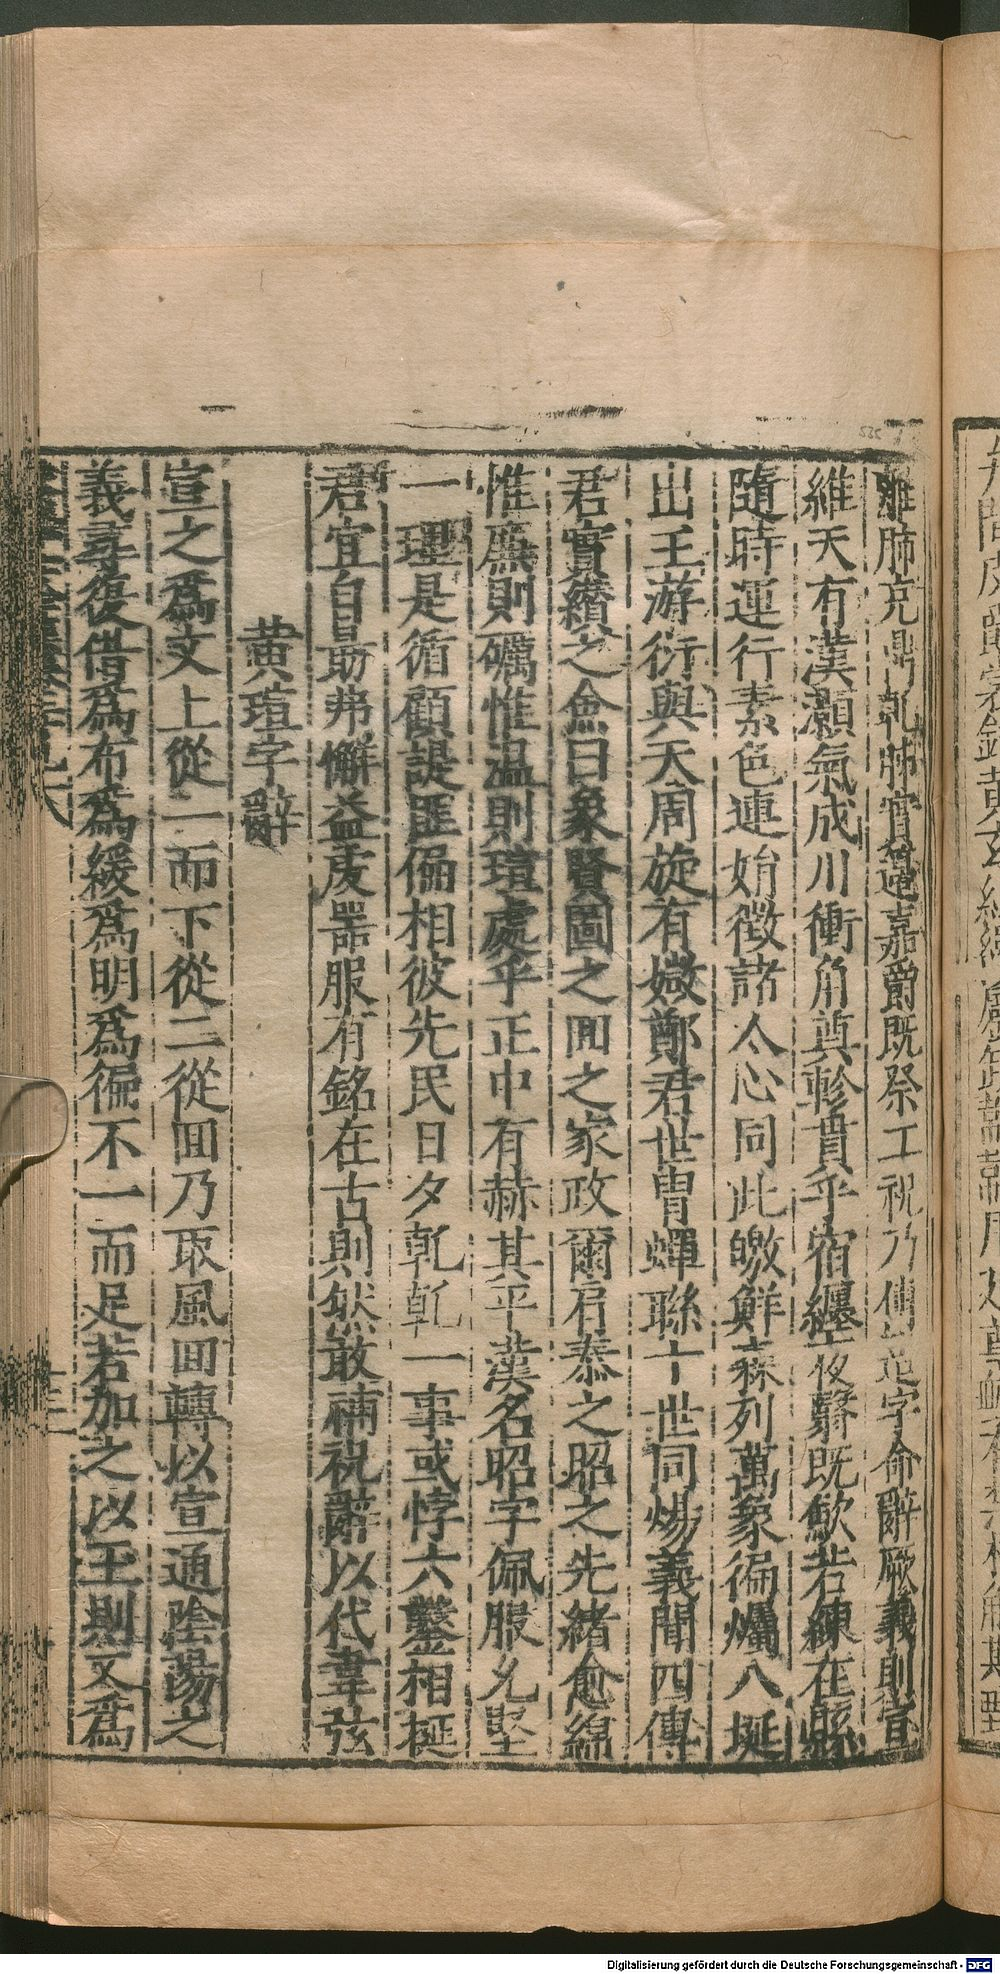 離肺充鼎乾胏實籩嘉爵既祭工祝乃傳造字命辭厥義則宣
維天有漢灝氣成川衝角奠軫貫乎宿纏夜翳既歛若練在縣
隨時運行素色連娟徵諸人心同此皦鮮森列萬象徧燭八埏
出王游衍與天周旋有媺鄭君世胄蟬聯十世同煬義聞四傳
君實纘之僉曰象賢圖之回之家政爾肩泰之昭之先緒愈綿
惟廉則礪惟温則瑄處乎正中有赫其平漢名昭字佩服允堅
一理是循顧諟匪偏相彼先民日夕乾乾一事或悖六鑿相挻
君宜自勗弗懈益虔噐服有銘在古則然敢補祝辭以代韋弦
黄瑄字辭
宣之爲文上從一而下從二從囬乃取風囬轉以宣通陰昜之
義尋復借爲布爲緩爲明爲徧不一而足若加之以玉則又爲
Digitalisierung gefördert durch die Deutsche Forschungsgemeinschaft - DFG